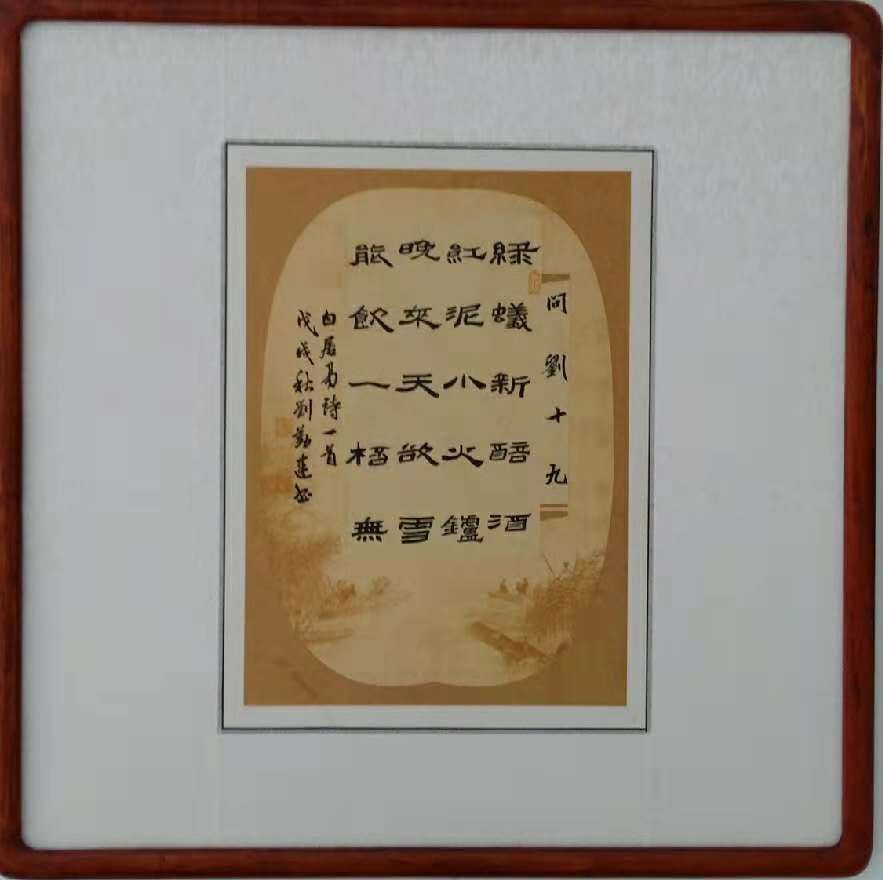 问劉十九
緑蟻新醅酒
紅泥小火鑪
晚來天欲雪
能飲一桮無
白居易詩一首
戊戌秋劉勤建书